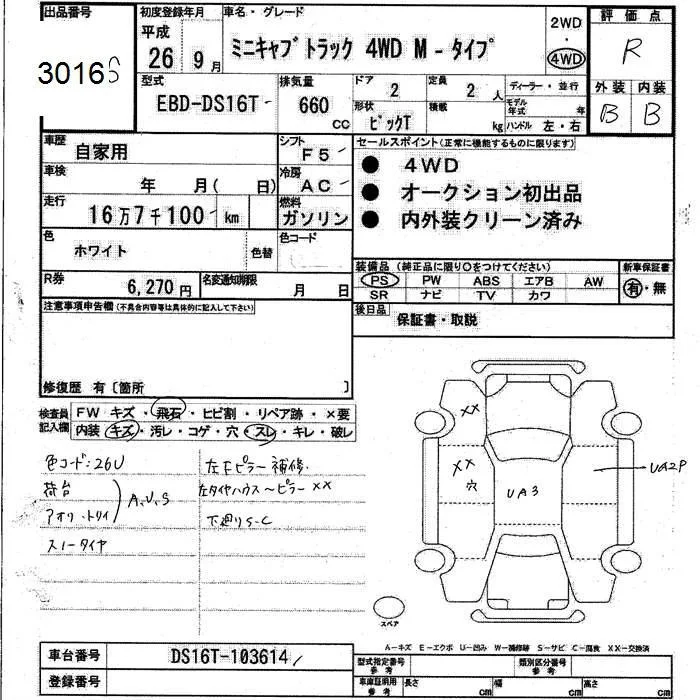 出品番号
30165
初度登録年月
平成
26 9月
車名・グレード
ミニキャブトラック 4WD M-タイプ
2WD
・
4WD
評価点
R
外装 内装
B B
型式
EBD-DS16T
排気量
660
CC
ドア
2
定員
2 人
ディーラー・並行
形状
ピックT
積載
kg
モデル年式 年
ハンドル 左・右
車歴
自家用
シフト
F5
車検
年 月( 日)
冷房
AC
走行
16万7千100 km
燃料
ガソリン
色
ホワイト
色替
色コード
R券
6,270円
名変通知期限
月 日
セールスポイント(正常に機能するものに限ります)
● 4WD
● オークション初出品
● 内外装クリーン済み
装備品 (純正品に限り○をつけてください)
PS PW ABS エアB AW
SR ナビ TV カワ
新車保証書
有・無
後日品
保証書・取説
注意事項申告欄(不具合内容等は具体的に記入して下さい)
修復歴 有〔箇所 〕
検査員
記入欄
FW キズ・飛石・ヒビ割・リペア跡・×要
内装 キズ・汚レ・コゲ・穴・スレ・キレ・破レ
色コード:26U
荷台
アオリ・トリイ
A、U、S
スノータイヤ
左Fピラー補修.
左タイヤハウス〜ピラー××
下廻りS-C
××
××
穴
UA3
UA2P
スペア
A-キズ E-エクボ U-凹み W-補修跡 S-サビ C-腐食 XX-交換済
車台番号
DS16T-103614
登録番号
型式指定番号
参考
類別区分番号
参考
車庫証明用
参考
長さ cm
幅 cm
高さ cm